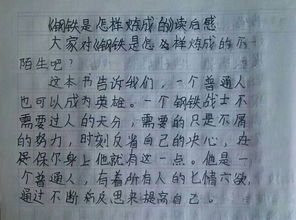 《钢铁是怎样炼成的》读后感
大家对《钢铁是怎么样炼成的》不
陌生吧？
这本书告诉我们，一个普通人
也可以成为英雄。一个钢铁战士不
需要过人的天分，需要的只是不屑
的努力，时刻反省自己的决心，在
保尔身上他就有这一点。他是一
个普通人，有着所有人的七情六欲，
通过不断的反思来提高自己。